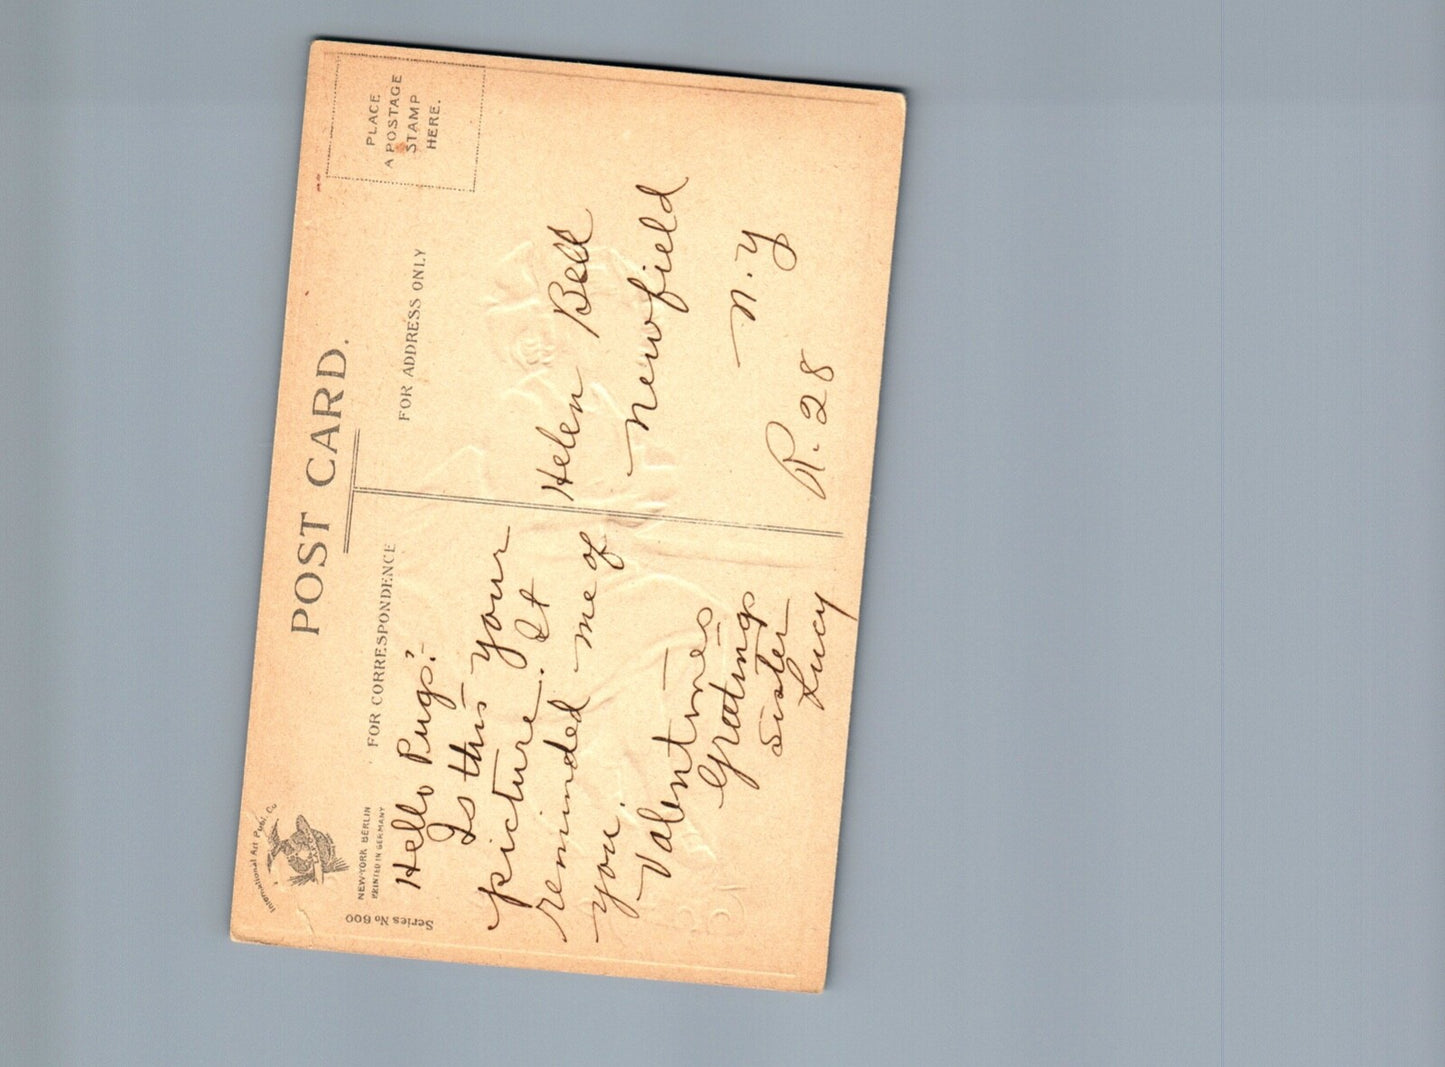 POST CARD.
PLACE
A POSTAGE
STAMP
HERE.
International Art Publ. Co
NEW-YORK BERLIN
PRINTED IN GERMANY
Series No 600
FOR CORRESPONDENCE
FOR ADDRESS ONLY
Hello Pugs!-
Is this your
picture. It
reminded me of
you.
Valentines
Gratings
Sister
Lucy
Helen Bell
Newfield
N.Y
R. 28